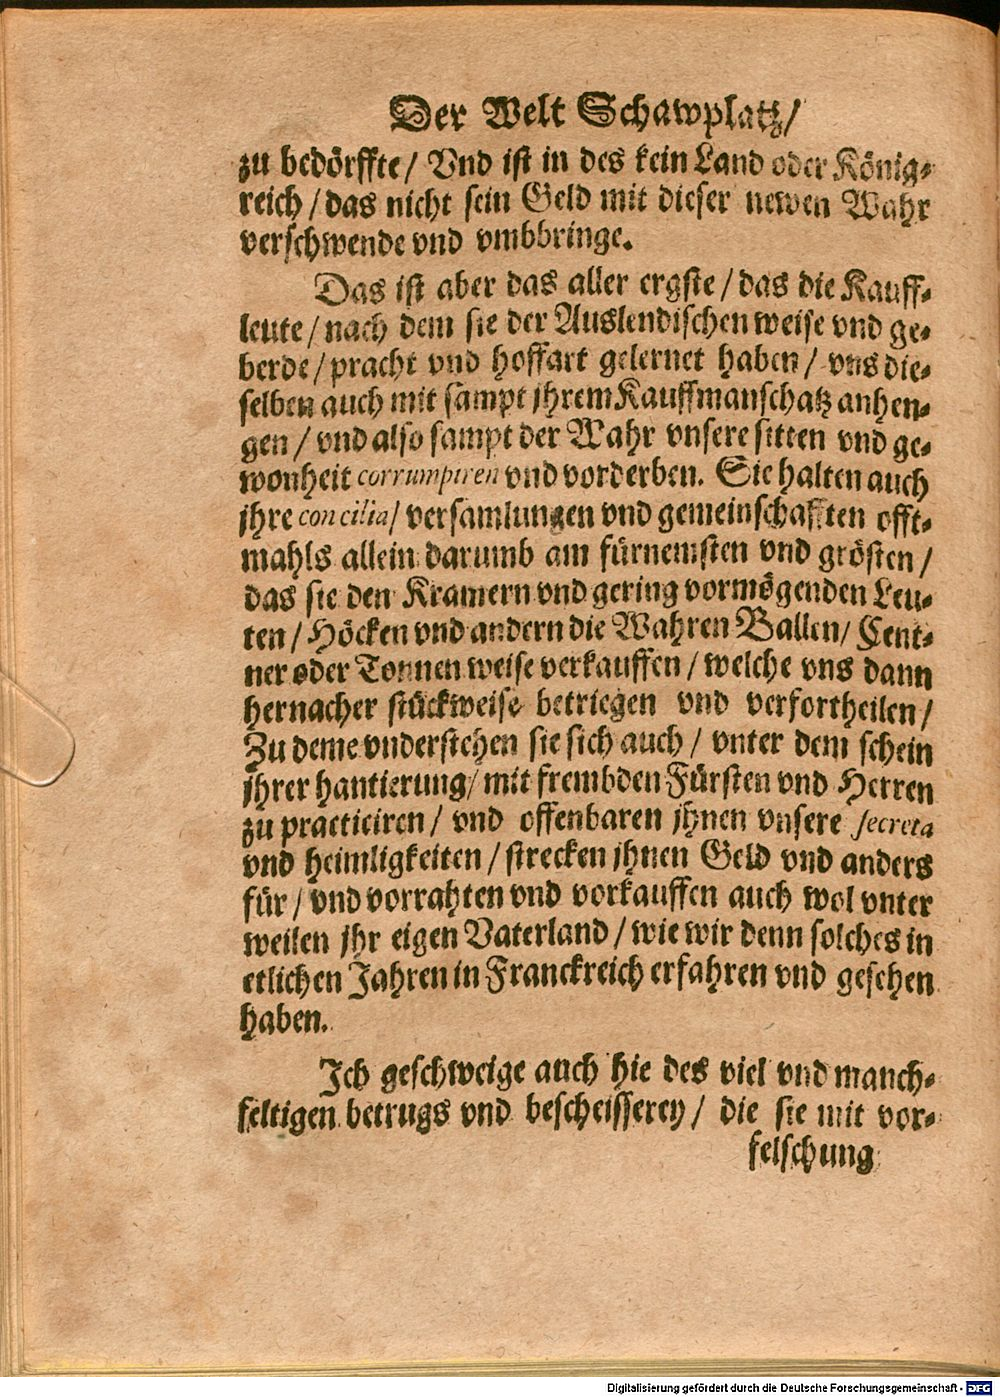 Der Welt Schawplatz/
zu bedörffte/ Vnd ist in des kein Land oder König-
reich/das nicht sein Geld mit dieser newen Wahr
verschwende vnd vmbbringe.
Das ist aber das aller ergste/das die Kauff-
leute/nach dem sie der Auslendischen weise vnd ge-
berde/pracht vnd hoffart gelernet haben/ vns die-
selben auch mit sampt jhrem Kauffmanschatz anhen-
gen/vnd also sampt der Wahr vnsere sitten vnd ge-
wonheit corrumpiren vnd vorderben. Sie halten auch
jhre concilia/ versamlungen vnd gemeinschafften offt-
mahls allein darumb am fürnemsten vnd grösten/
das sie den Kramern vnd gering vormögenden Leu-
ten/Höcken vnd andern die Wahren Ballen/ Cent-
ner oder Tonnen weise verkauffen/welche vns dann
hernacher stückweise betriegen vnd verfortheilen/
Zu deme vnderstehen sie sich auch/ vnter dem schein
jhrer hantierung/ mit frembden Fürsten vnd Herren
zu practiciren/ vnd offenbaren jhnen vnsere secreta
vnd heimligkeiten/strecken jhnen Geld vnd anders
für/vnd vorrahten vnd vorkauffen auch wol vnter
weilen jhr eigen Vaterland/wie wir denn solches in
etlichen Jahren in Franckreich erfahren vnd gesehen
haben.
Ich geschweige auch hie des viel vnd manch-
feltigen betrugs vnd bescheisserey/ die sie mit vor-
felschung
Digitalisierung gefördert durch die Deutsche Forschungsgemeinschaft - DFG